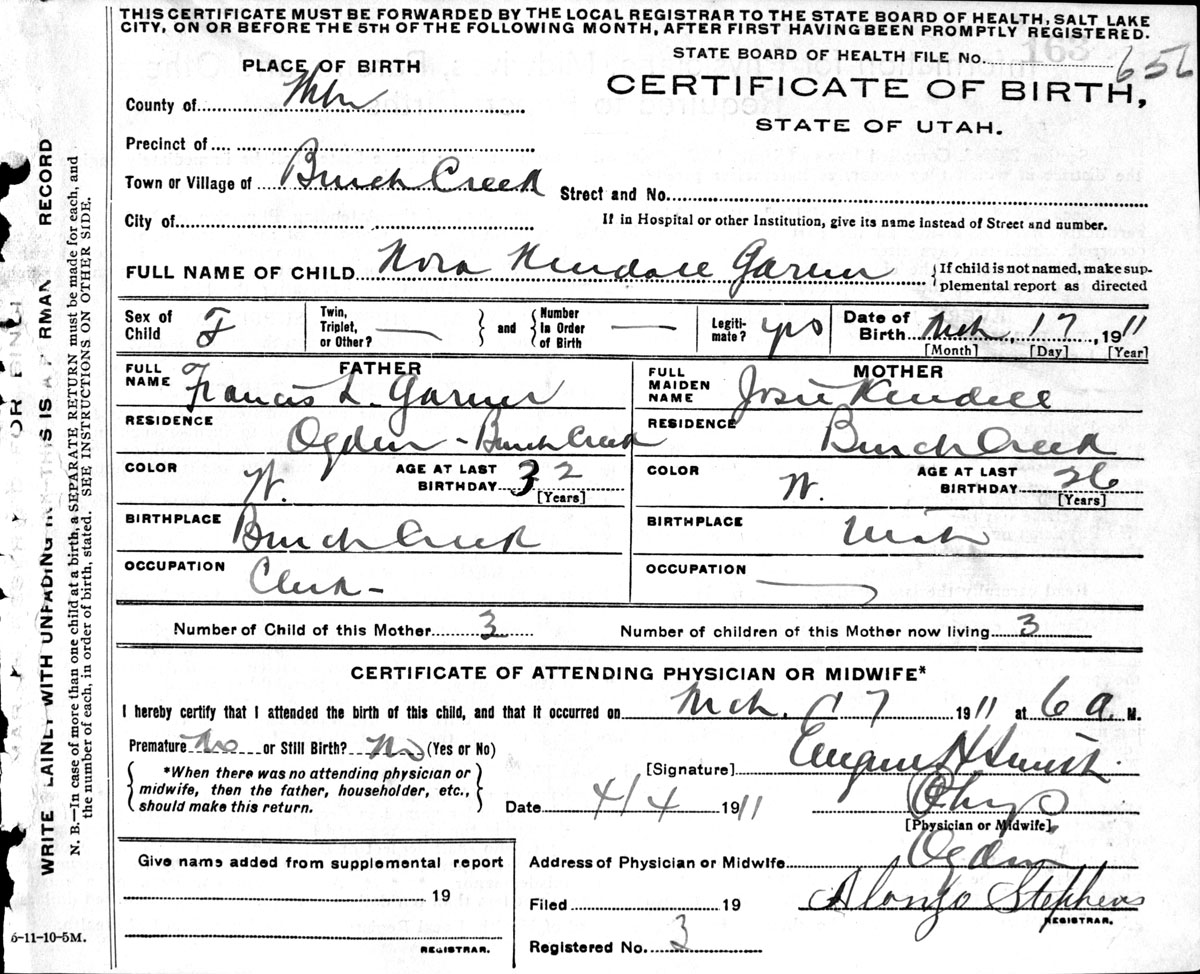 THIS CERTIFICATE MUST BE FORWARDED BY THE LOCAL REGISTRAR TO THE STATE BOARD OF HEALTH, SALT LAKE
CITY, ON OR BEFORE THE 5TH OF THE FOLLOWING MONTH, AFTER FIRST HAVING BEEN PROMPTLY REGISTERED.
STATE BOARD OF HEALTH FILE No. 656
163
PLACE OF BIRTH
CERTIFICATE OF BIRTH,
STATE OF UTAH.
County of
Precinct of
Town or Village of Burch Creek
Street and No.
City of
If in Hospital or other Institution, give its name instead of Street and number.
FULL NAME OF CHILD Nora Kendall Garner
If child is not named, make sup-
plemental report as directed
Sex of Child F
Twin, Triplet, or Other? —
and
Number in Order of Birth —
Legiti-mate? yes
Date of Birth Mch. 17, 1911
[Month] [Day] [Year]
FATHER
FULL NAME Francis L. Garner
MOTHER
FULL MAIDEN NAME Josie Kendell
RESIDENCE Ogden - Burch Creek
RESIDENCE Burch Creek
COLOR W.
AGE AT LAST BIRTHDAY 32 [Years]
COLOR W.
AGE AT LAST BIRTHDAY 26 [Years]
BIRTHPLACE Burch Creek
BIRTHPLACE Utah
OCCUPATION Clerk -
OCCUPATION —
Number of Child of this Mother 3
Number of children of this Mother now living 3
CERTIFICATE OF ATTENDING PHYSICIAN OR MIDWIFE*
I hereby certify that I attended the birth of this child, and that it occurred on Mch. 17 1911 at 6 a. M.
Premature No or Still Birth? No (Yes or No)
[Signature] Eugene H Smith
*When there was no attending physician or
midwife, then the father, householder, etc.,
should make this return.
Date 4/4 1911
Phys
[Physician or Midwife]
Give name added from supplemental report
19
REGISTRAR.
Address of Physician or Midwife Ogden
Filed 19
Alonzo Stephens
REGISTRAR.
Registered No. 3
6-11-10-5M.
WRITE PLAINLY WITH UNFADING THIS IS A PERMAN RECORD
N. B.—In case of more than one child at a birth, a SEPARATE RETURN must be made for each, and
the number of each, in order of birth, stated. SEE INSTRUCTIONS ON OTHER SIDE.